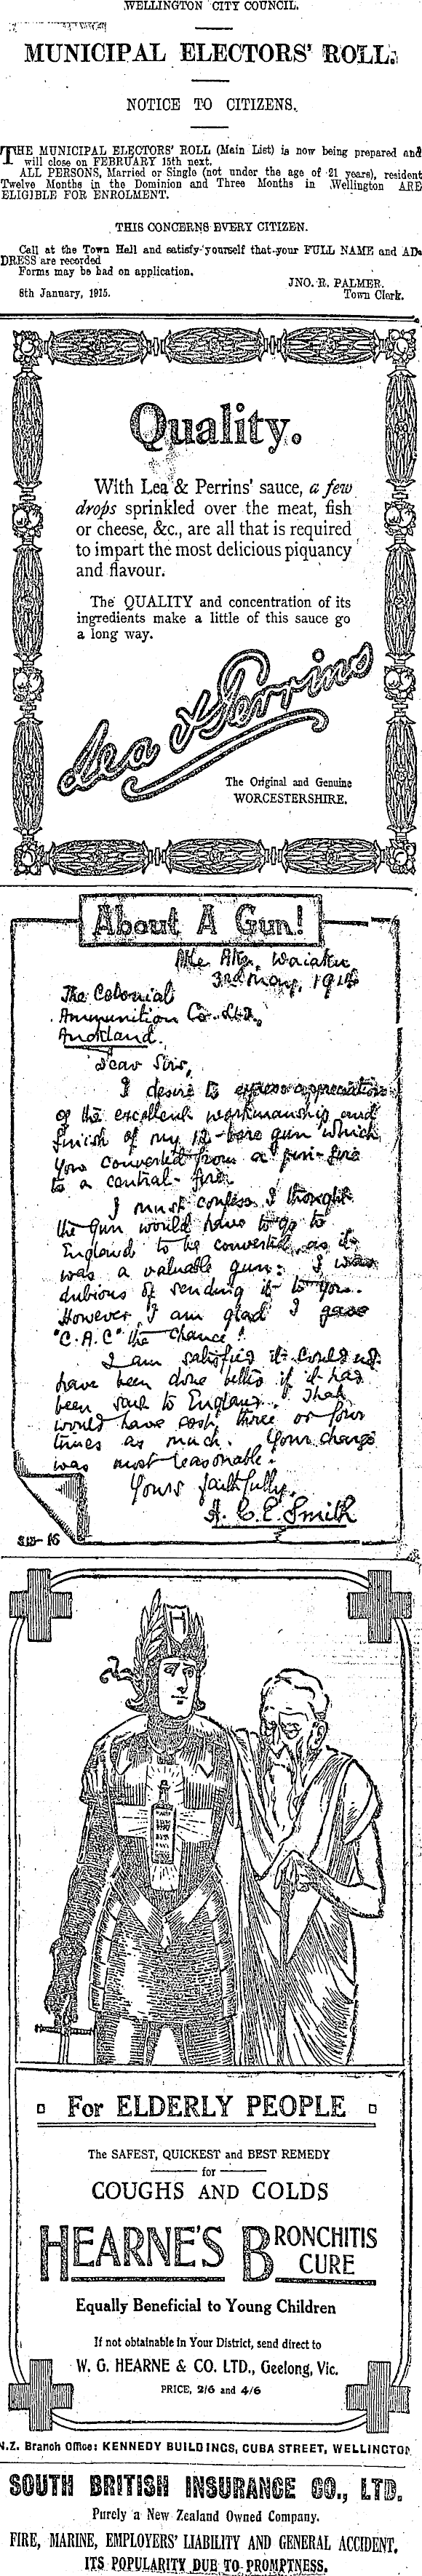 WELLINGTON CITY COUNCIL.
MUNICIPAL ELECTORS' ROLL.
NOTICE TO CITIZENS.
THE MUNICIPAL ELECTORS' ROLL (Main List) is now being prepared and
will close on FEBRUARY 15th next.
ALL PERSONS, Married or Single (not under the age of 21 years), resident
Twelve Months in the Dominion and Three Months in Wellington ARE
ELIGIBLE FOR ENROLMENT.
THIS CONCERNS EVERY CITIZEN.
Call at the Town Hall and satisfy yourself that your FULL NAME and AD-
DRESS are recorded
Forms may be had on application.
JNO. R. PALMER.
8th January, 1915. Town Clerk.
Quality.
With Lea & Perrins' sauce, a few
drops sprinkled over the meat, fish
or cheese, &c., are all that is required
to impart the most delicious piquancy
and flavour.
The QUALITY and concentration of its
ingredients make a little of this sauce go
a long way.
Lea & Perrins
The Original and Genuine
WORCESTERSHIRE.
About A Gun!
Waiatu
3rd May, 1914
The Colonial
Ammunition Co. Ltd.,
Auckland.
Dear Sirs,
I desire to express appreciation
of the excellent workmanship and
finish of my 12-bore gun which
you converted from a pin-fire
to a central-fire.
I must confess I thought
the gun would have to go to
England to be converted as it
was a valuable gun: I was
dubious of sending it to you.
However, I am glad I gave
"C.A.C" the chance!
I am satisfied it could not
have been done better if it had
been sent to England. That
would have cost three or four
times as much. Your charge
was most reasonable.
Yours faithfully,
A. E. E. Smith
S13-16
H
For ELDERLY PEOPLE
The SAFEST, QUICKEST and BEST REMEDY
for
COUGHS AND COLDS
HEARNE'S BRONCHITIS
CURE
Equally Beneficial to Young Children
If not obtainable in Your District, send direct to
W. G. HEARNE & CO. LTD., Geelong, Vic.
PRICE, 2/6 and 4/6
N.Z. Branch Office: KENNEDY BUILDINGS, CUBA STREET, WELLINGTON
SOUTH BRITISH INSURANCE CO., LTD.
Purely a New Zealand Owned Company.
FIRE, MARINE, EMPLOYERS' LIABILITY AND GENERAL ACCIDENT.
ITS POPULARITY DUE TO PROMPTNESS.